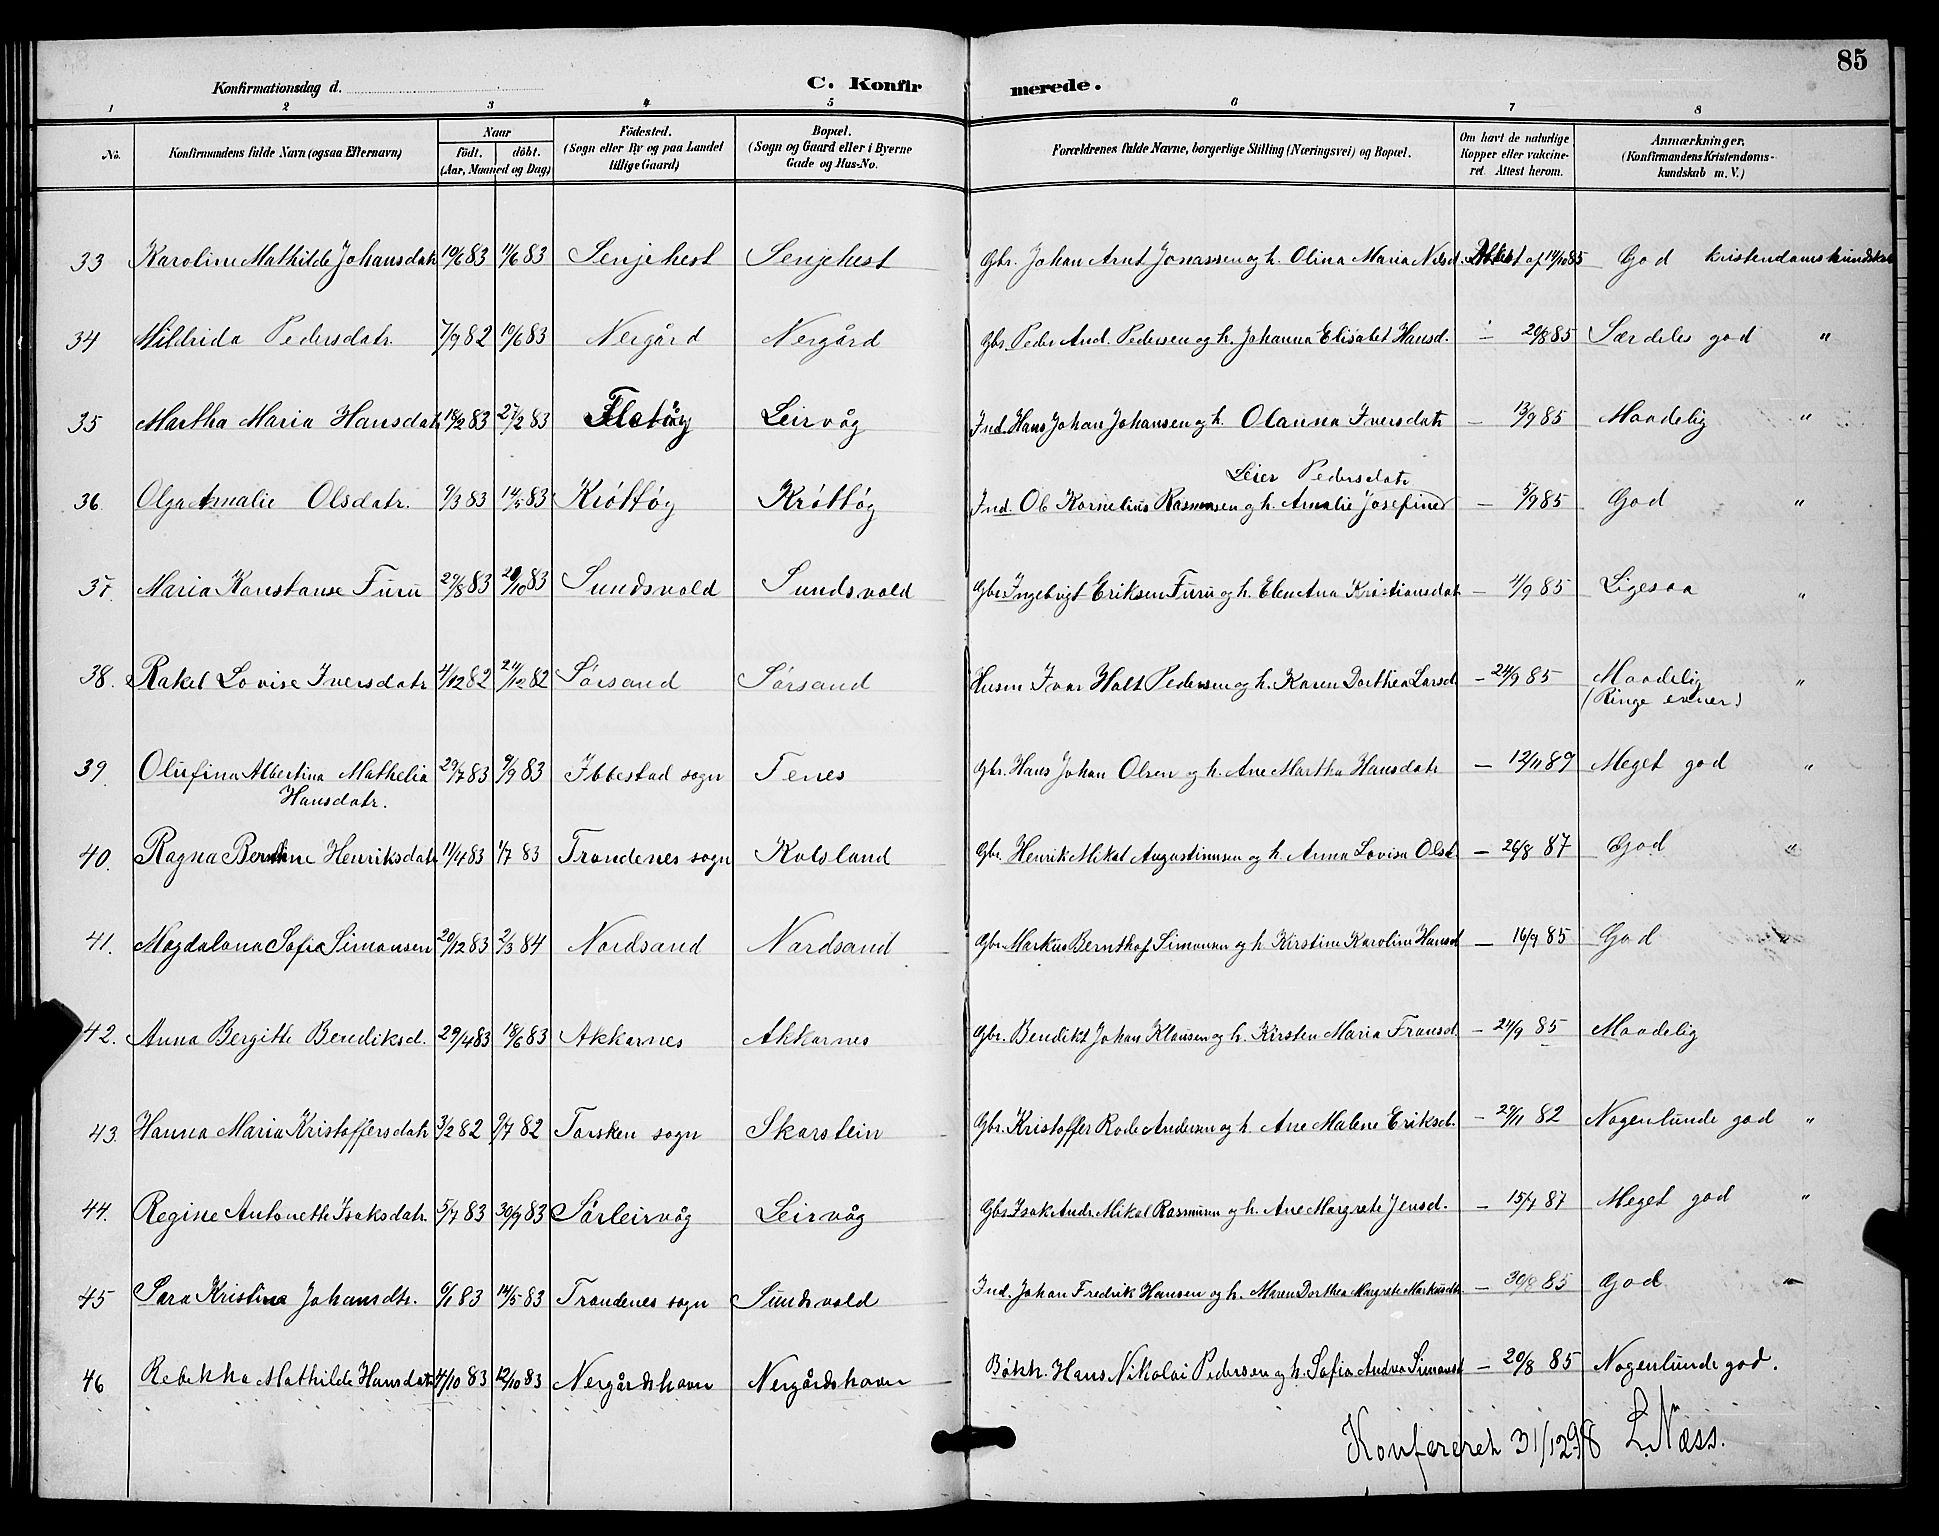 85
Konfirmationsdag d.
C. Konfirmerede.
1 2 3 4 5 6 7 8
No. Konfirmandens fulde Navn (ogsaa Efternavn) Naar födt. döbt. (Aar, Maaned og Dag) Födested. (Sogn eller By og paa Landet tillige Gaard) Bopæl. (Sogn og Gaard eller i Byerne Gade og Hus-No. Forældrenes fulde Navne, borgerlige Stilling (Næringsvei) og Bopæl. Om havt de naturlige Kopper eller vakcineret. Attest herom. Anmærkninger. (Konfirmandens Kristendomskundskab m. V.)
33 Karoline Mathilde Johansdatr 19/6 83 11/6 83 Senjehest Senjehest Gbr. Johan Arnt Jonassen og h. Olina Maria Nilsd. Attest af 14/10 85 God kristendomskundskab
34 Hildrida Pedersdatr. 7/9 82 10/6 83 Nergård Nergård Gbr. Peder And. Pedersen og h. Johanna Elisabet Hansd. — 20/8 85 Særdeles god "
35 Martha Maria Hansdatr 18/2 83 25/2 83 Leirvåg Ind. Hans Johan Johansen og h. Olanna Iversdatr — 13/9 85 Maadelig "
Leier Pedersdatr
36 Olga Amalie Olsdatr. 9/3 83 14/5 83 Krøttøy Krøttøy Ind. Ol Kornelius Rasmussen og h. Amalie Josefine — 5/9 85 God "
37. Maria Konstanse Furu 29/8 83 29/10 83 Sundsvold Sundsvold Gbr. Ingebrigt Eriksen Furu og h. Elen Ana Kristiansdatr — 4/9 85 Ligesaa "
38. Rakel Lovise Iversdatr 4/12 82 24/12 82 Sørsand Sørsand Husm Ivar Holt Pedersen og h. Karen Dorthea Larsd. — 24/9 85 Maadelig "
(Ringe evner)
39. Olufina Albertina Mathelia 29/7 83 9/9 83 Ibbestad sogn Tenes Gbr. Hans Johan Olsen og h. Ane Martha Hansdatr — 12/11 89 Meget god "
Hansdatr.
40. Ragna Bernthine Henriksdatr 11/4 83 1/7 83 Trondenes sogn Kolsland Gbr. Henrik Mikal Augustinusen og h. Anna Lovisa Olsd. — 26/8 87 God "
41. Magdalena Sofie Simonsen 20/12 83 2/3 84 Nordsand Nordsand Gbr. Markus Bernthof Simonsen og h. Kirstine Karoline Hansd — 16/9 85 God
42. Anna Bergitte Benediksd. 29/4 83 18/6 83 Akkarnes Akkarnes Gbr. Benedikt Johan Klausen og h. Kirsten Maria Fransd. — 24/9 85 Maadelig
43. Hanna Maria Kristoffersdatr 3/2 82 9/7 82 Torsken sogn Skarstein Gbr. Kristoffer Rode Andersen og h. Ane Malene Eriksd. — 29/11 82 Nogenlunde god "
44. Regine Antonette Isaksdatr. 5/7 83 30/9 83 Sørleirvåg Leirvåg Gbr. Isak Andr. Mikal Rasmusen og h. Ane Margrete Jensd. — 15/7 87 Meget god "
45 Sara Kristine Johansdtr. 6/1 83 14/5 83 Trondenes sogn Sundsvold Ind. Johan Fredrik Hansen og h. Maren Dorthea Margrete Markusdtr. — 30/8 85 God "
46 Rebekka Mathilde Hansdatr 4/10 83 12/10 83 Nergårdshavn Nergårdshavn Bøkk. Hans Nikolai Pedersen og h. Sofie Andrea Simonsd — 20/8 85 Nogenlunde god.
Konfereret 31/12 98 L. Næss.